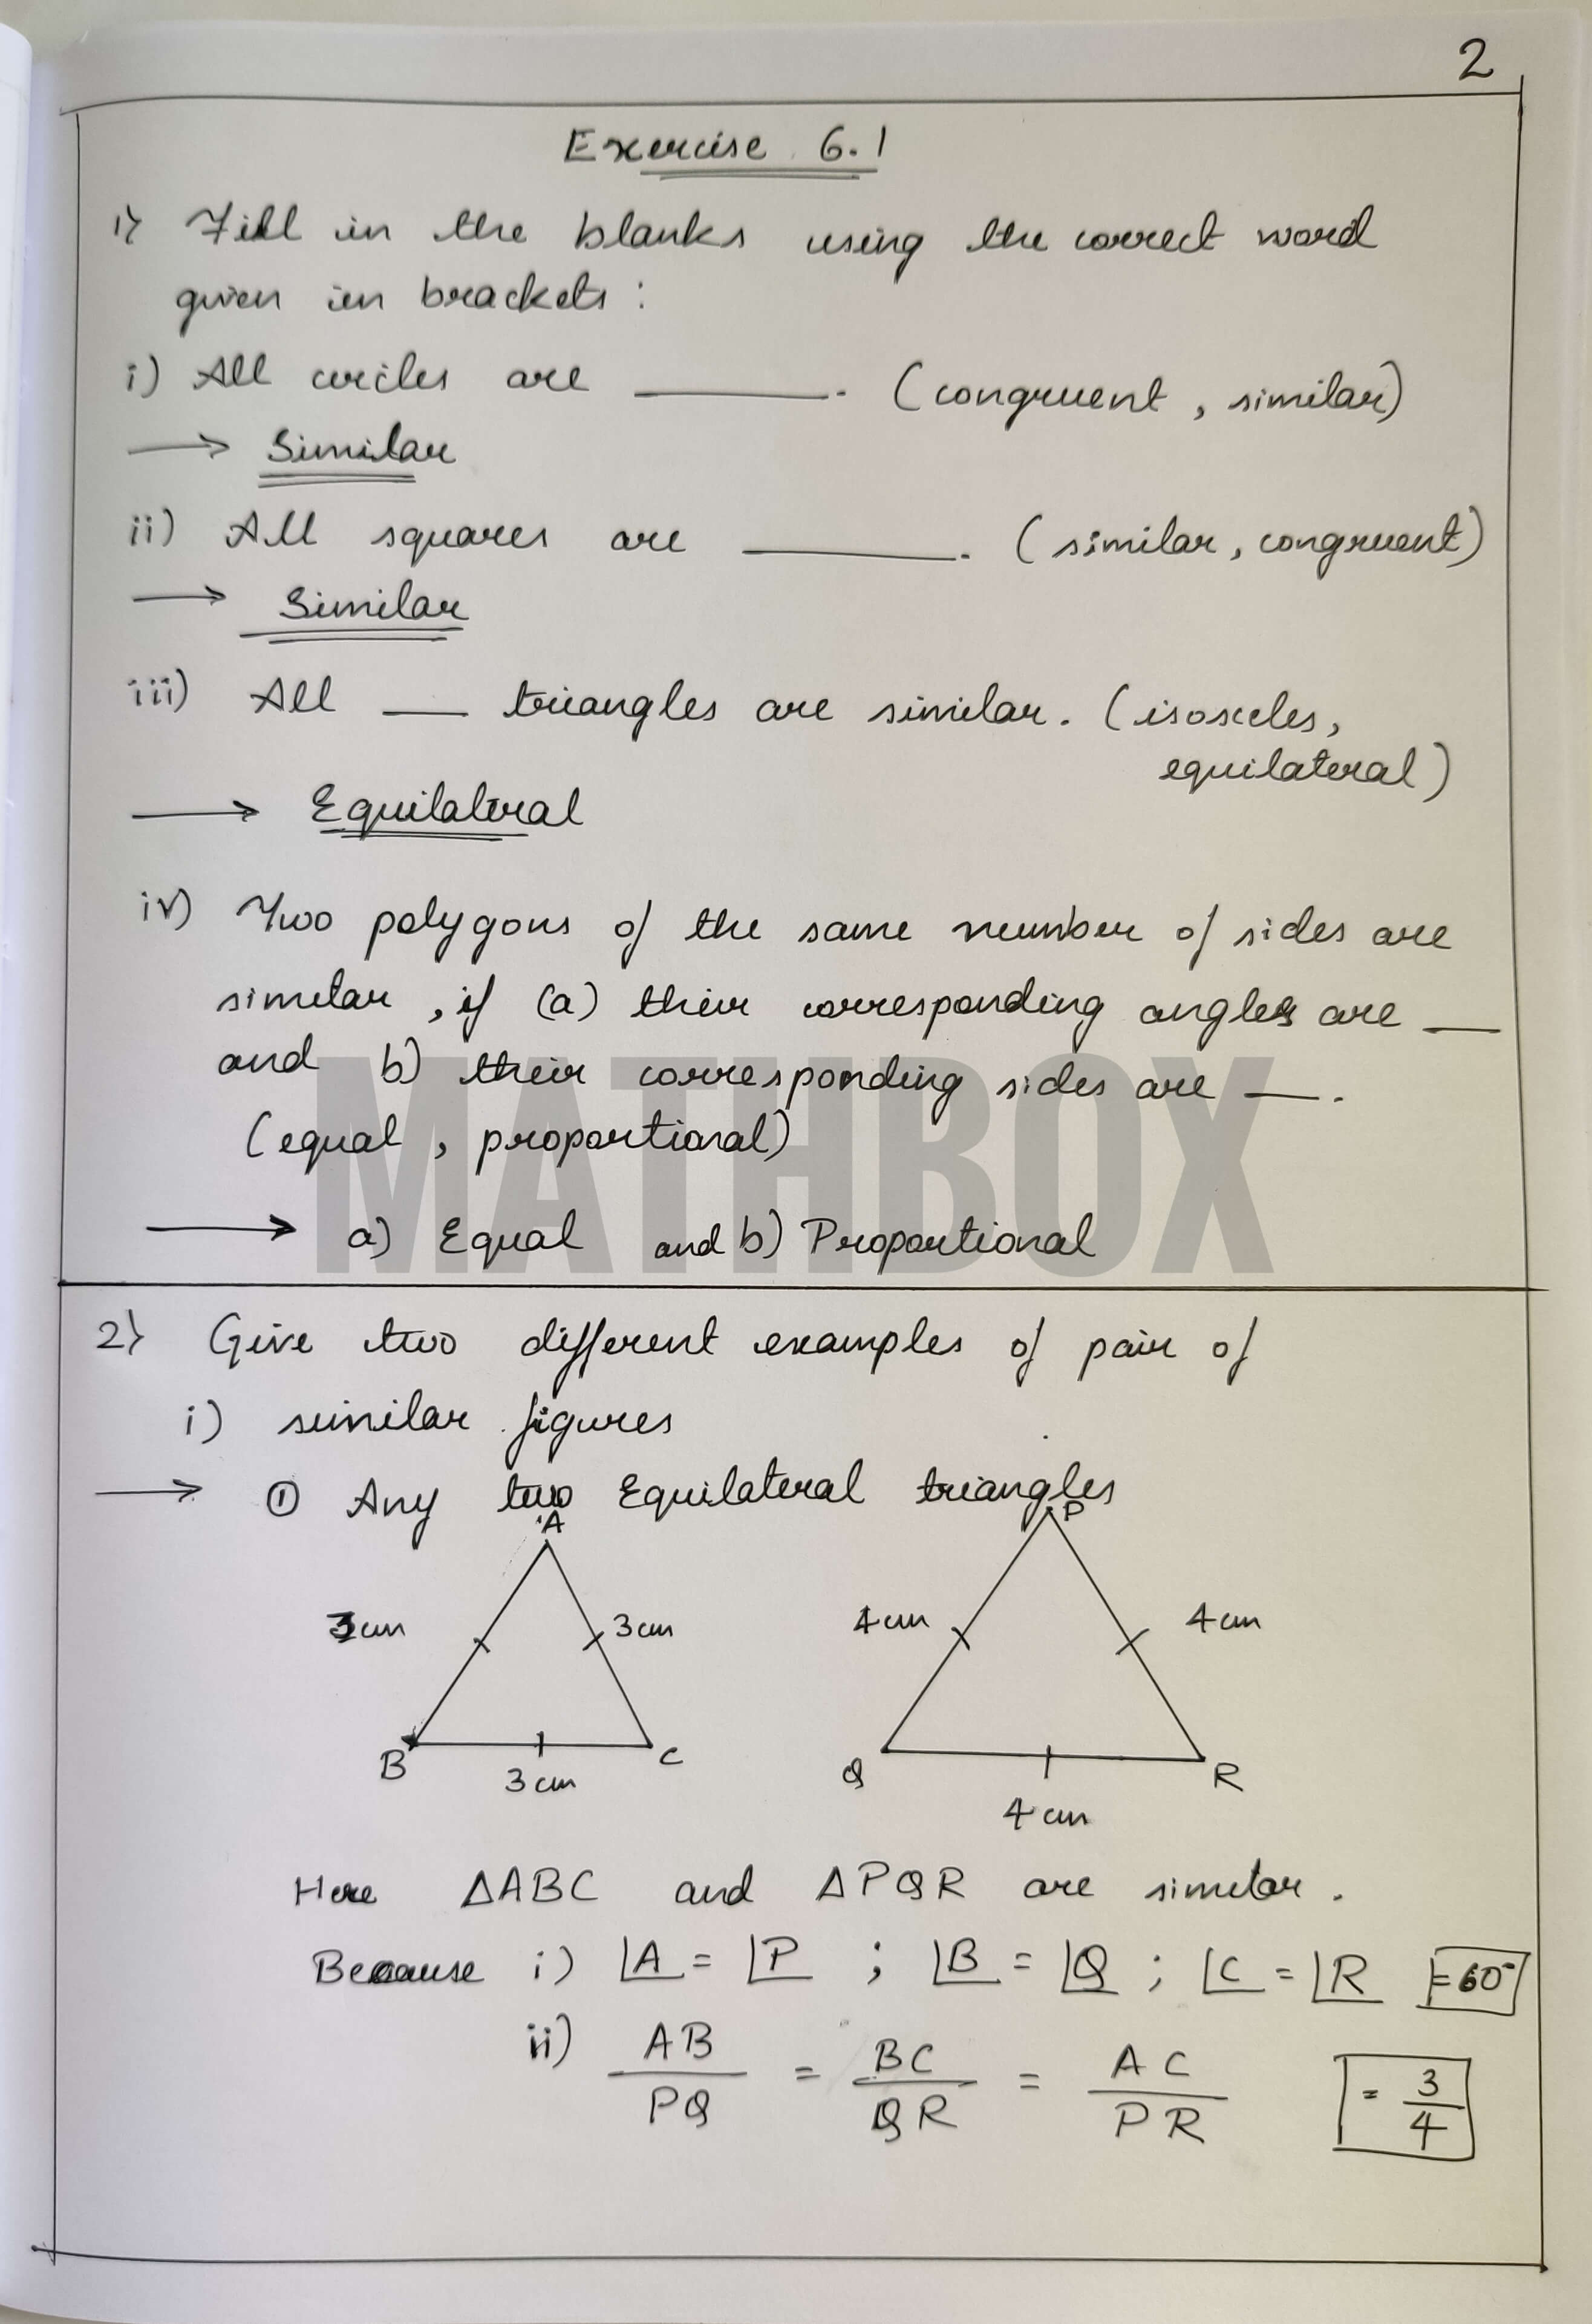 2
Exercise 6.1
1) Fill in the blanks using the correct word
given in brackets :
i) All circles are ______. (congruent, similar)
→ Similar
ii) All squares are ______. (similar, congruent)
→ Similar
iii) All ___ triangles are similar. (isosceles,
equilateral)
→ Equilateral
iv) Two polygons of the same number of sides are
similar, if (a) their corresponding angles are ___
and b) their corresponding sides are ___.
(equal, proportional)
→ a) Equal and b) Proportional
MATHBOX
2) Give two different examples of pair of
i) similar figures
→ ① Any two Equilateral triangles
A P
3cm 3cm 4cm 4cm
B C Q R
3cm 4cm
Here ΔABC and ΔPQR are similar.
Because i) ∠A = ∠P ; ∠B = ∠Q ; ∠C = ∠R =60°
ii) AB/PQ = BC/QR = AC/PR = 3/4